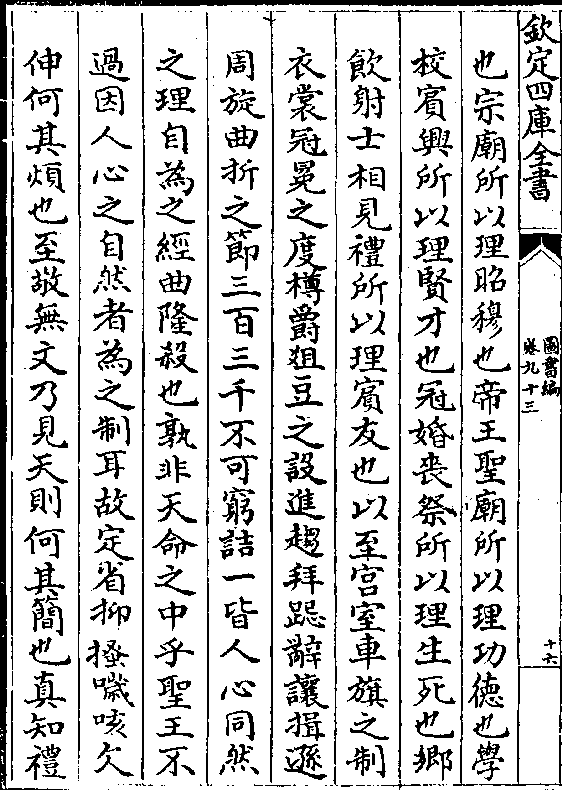 欽定四庫全書
圖書編
卷九十三
十六
也宗廟所以理昭穆也帝王聖廟所以理功德也學
校賓興所以理賢才也冠婚丧祭所以理生死也鄉
飲射士相見禮所以理賓友也以至宮室車旗之制
衣裳冠冕之度樽爵俎豆之設進趨拜跽辭讓揖遜
周旋曲折之節三百三千不可窮詰一皆人心同然
之理自為之經曲隆殺也孰非天命之中乎聖王不
過因人心之自然者為之制耳故定省抑搔噦咳欠
伸何其煩也至敬無文乃見天則何其簡也真知禮